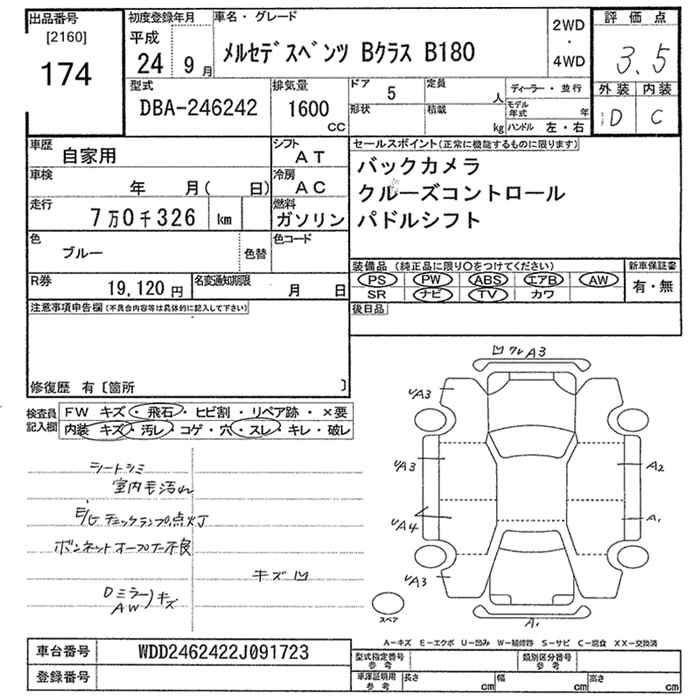 出品番号
[2160]
174
初度登録年月
平成
24 9月
車名・グレード
メルセデスベンツ Bクラス B180
2WD
・
4WD
評価点
3.5
外装 内装
D C
型式
DBA-246242
排気量
1600
CC
ドア 5
定員 人
形状
積載 kg
ディーラー・並行
モデル年式 年
ハンドル 左・右
車歴
自家用
シフト
AT
車検
年 月( 日)
冷房
AC
走行
7万0千326 km
燃料
ガソリン
色
ブルー
色替
色コード
R券
19,120円
名変通知期限
月 日
セールスポイント(正常に機能するものに限ります)
バックカメラ
クルーズコントロール
パドルシフト
装備品 (純正品に限り○をつけてください)
新車保証書
PS PW ABS エアB AW
SR ナビ TV カワ
有・無
後日品
注意事項申告欄(不具合内容等は具体的に記入して下さい)
修復歴 有 [箇所 ]
検査員
記入欄
FW キズ・飛石・ヒビ割・リペア跡・×要
内装 キズ・汚レ・コゲ・穴・スレ・キレ・破レ
シートシミ
室内毛汚れ
E/G チェックランプ点灯
ボンネットオープナー不良
キズ凹
Dミラー)キズ
AW
凹ワレA3
A3
A3
A2
A4
A1
A3
A1
スペア
A-キズ E-エクボ U-凹み W-補修跡 S-サビ C-腐食 XX-交換済
車台番号
WDD2462422J091723
登録番号
型式指定番号
参考
類別区分番号
参考
車庫証明用
参考
長さ cm
幅 cm
高さ cm